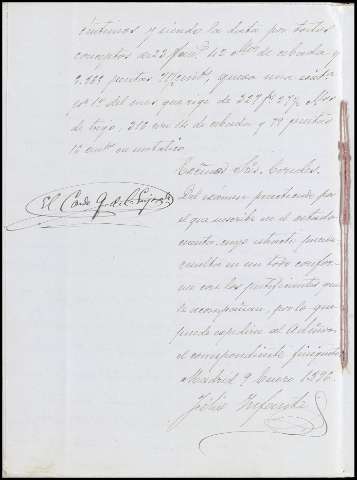 céntimos y siendo la data por todos
conceptos de 22 fan.s 42 de cebada y
pesetas cent.s, queda una
pª 1º del mes que rige de 227 fs 27
de trigo, 212 14 de cebada y 79 pesetas
12 cent.s en metálico.
Excmos. Sres. Condes.
El Conde
Del examen practicado por
el que suscribe en el estado
cuenta cuyo extracto precede
resulta en un todo conforme
con los justificantes que
le acompañan, por lo que
puede expedirse al Admor.
el correspondiente finiquito
Madrid 9 Enero 1896.
Julio Infante